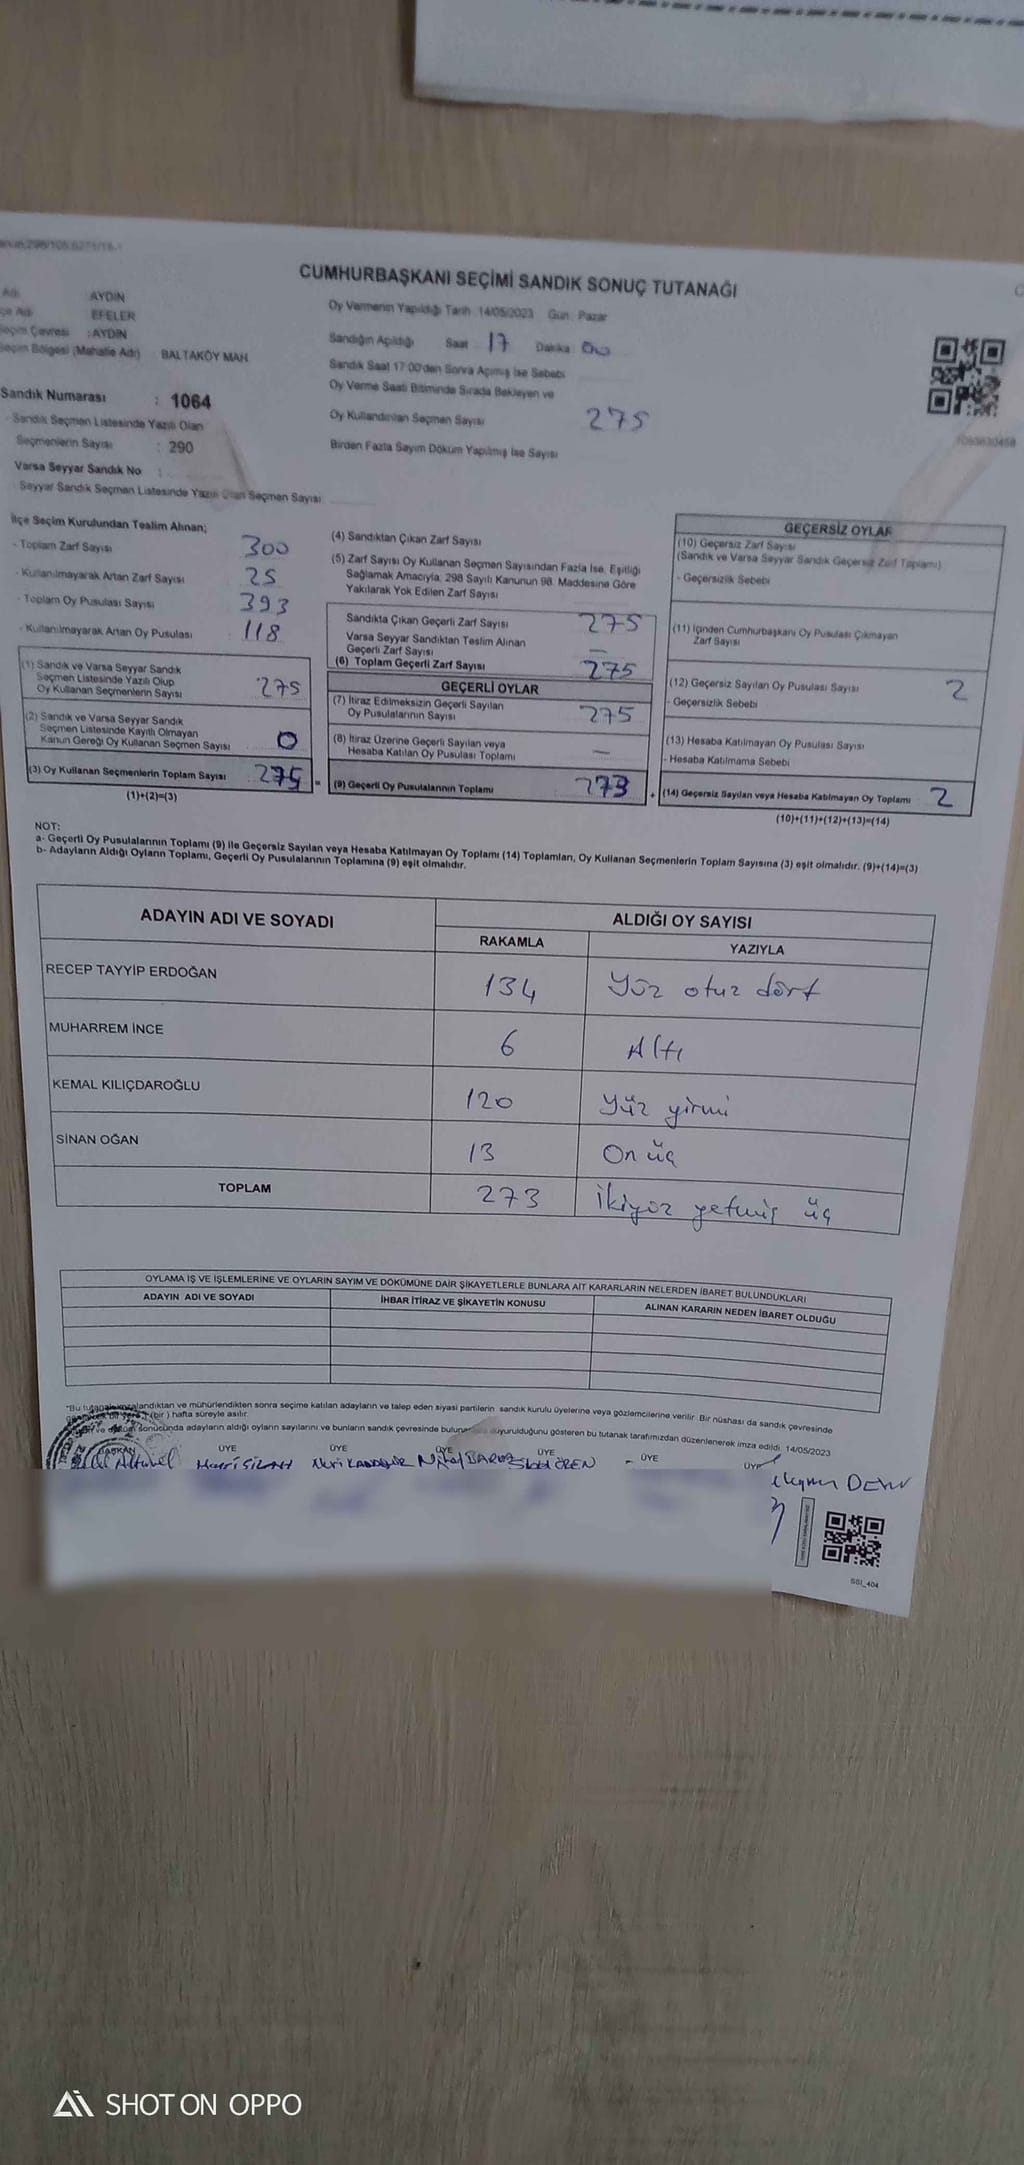 CUMHURBAŞKANI SEÇİMİ SANDIK SONUÇ TUTANAĞI
AYDIN
EFELER
Seçim Çevresi : AYDIN
Seçim Bölgesi (Mahalle Adı) BALTAKÖY MAH.
Oy Vermenin Yapıldığı Tarih 14/05/2023 Gün Pazar
Sandığın Açıldığı Saat 17 Dakika 00
Sandık Saat 17:00'den Sonra Açımış İse Sebebi
Oy Verme Saati Bitiminde Sırada Bekleyen ve
Oy Kullandırılan Seçmen Sayısı 275
Birden Fazla Sayım Döküm Yapılmış İse Sayısı
Sandık Numarası : 1064
- Sandık Seçmen Listesinde Yazılı Olan
Seçmenlerin Sayısı : 290
Varsa Seyyar Sandık No :
- Seyyar Sandık Seçmen Listesinde Yazılı Olan Seçmen Sayısı
İlçe Seçim Kurulundan Teslim Alınan;
- Toplam Zarf Sayısı 300
- Kullanılmayarak Artan Zarf Sayısı 25
- Toplam Oy Pusulası Sayısı 393
- Kullanılmayarak Artan Oy Pusulası : 118
(1) Sandık ve Varsa Seyyar Sandık
Seçmen Listesinde Yazılı Olup
Oy Kullanan Seçmenlerin Sayısı 275
(2) Sandık ve Varsa Seyyar Sandık
Seçmen Listesinde Kayıtlı Olmayan
Kanun Gereği Oy Kullanan Seçmen Sayısı 0
(3) Oy Kullanan Seçmenlerin Toplam Sayısı 275
(1)+(2)=(3)
(4) Sandıktan Çıkan Zarf Sayısı
(5) Zarf Sayısı Oy Kullanan Seçmen Sayısından Fazla İse, Eşitliği
Sağlamak Amacıyla, 298 Sayılı Kanunun 98. Maddesine Göre
Yakılarak Yok Edilen Zarf Sayısı
Sandıkta Çıkan Geçerli Zarf Sayısı 275
Varsa Seyyar Sandıktan Teslim Alınan
Geçerli Zarf Sayısı —
(6) Toplam Geçerli Zarf Sayısı 275
GEÇERLİ OYLAR
(7) İtiraz Edilmeksizin Geçerli Sayılan
Oy Pusulalarının Sayısı 275
(8) İtiraz Üzerine Geçerli Sayılan veya
Hesaba Katılan Oy Pusulası Toplamı —
(9) Geçerli Oy Pusulalarının Toplamı 273
GEÇERSİZ OYLAR
(10) Geçersiz Zarf Sayısı
(Sandık ve Varsa Seyyar Sandık Geçersiz Zarf Toplamı)
- Geçersizlik Sebebi
(11) İçinden Cumhurbaşkanı Oy Pusulası Çıkmayan
Zarf Sayısı
(12) Geçersiz Sayılan Oy Pusulası Sayısı 2
- Geçersizlik Sebebi
(13) Hesaba Katılmayan Oy Pusulası Sayısı
- Hesaba Katılmama Sebebi
(14) Geçersiz Sayılan veya Hesaba Katılmayan Oy Toplamı 2
(10)+(11)+(12)+(13)=(14)
NOT:
a- Geçerli Oy Pusulalarının Toplamı (9) ile Geçersiz Sayılan veya Hesaba Katılmayan Oy Toplamı (14) Toplamları, Oy Kullanan Seçmenlerin Toplam Sayısına (3) eşit olmalıdır. (9)+(14)=(3)
b- Adayların Aldığı Oyların Toplamı, Geçerli Oy Pusulalarının Toplamına (9) eşit olmalıdır.
ADAYIN ADI VE SOYADI ALDIĞI OY SAYISI
RAKAMLA YAZIYLA
RECEP TAYYİP ERDOĞAN 134 Yüz otuz dört
MUHARREM İNCE 6 Altı
KEMAL KILIÇDAROĞLU 120 Yüz yirmi
SİNAN OĞAN 13 On üç
TOPLAM 273 İkiyüz yetmiş üç
OYLAMA İŞ VE İŞLEMLERİNE VE OYLARIN SAYIM VE DÖKÜMÜNE DAİR ŞİKAYETLERLE BUNLARA AİT KARARLARIN NELERDEN İBARET BULUNDUKLARI
ADAYIN ADI VE SOYADI İHBAR İTİRAZ VE ŞİKAYETİN KONUSU ALINAN KARARIN NEDEN İBARET OLDUĞU
ve mühürlendikten sonra seçime katılan adayların ve talep eden siyasi partilerin sandık kurulu üyelerine veya gözlemcilerine verilir. Bir nüshası da sandık çevresinde
(bir) hafta süreyle asılır.
sonucunda adayların aldığı oyların sayılarını ve bunların sandık çevresinde duyurulduğunu gösteren bu tutanak tarafımızdan düzenlenerek imza edildi. 14/05/2023
BAŞKAN ÜYE ÜYE ÜYE ÜYE ÜYE ÜYE
SSI_404
SHOT ON OPPO